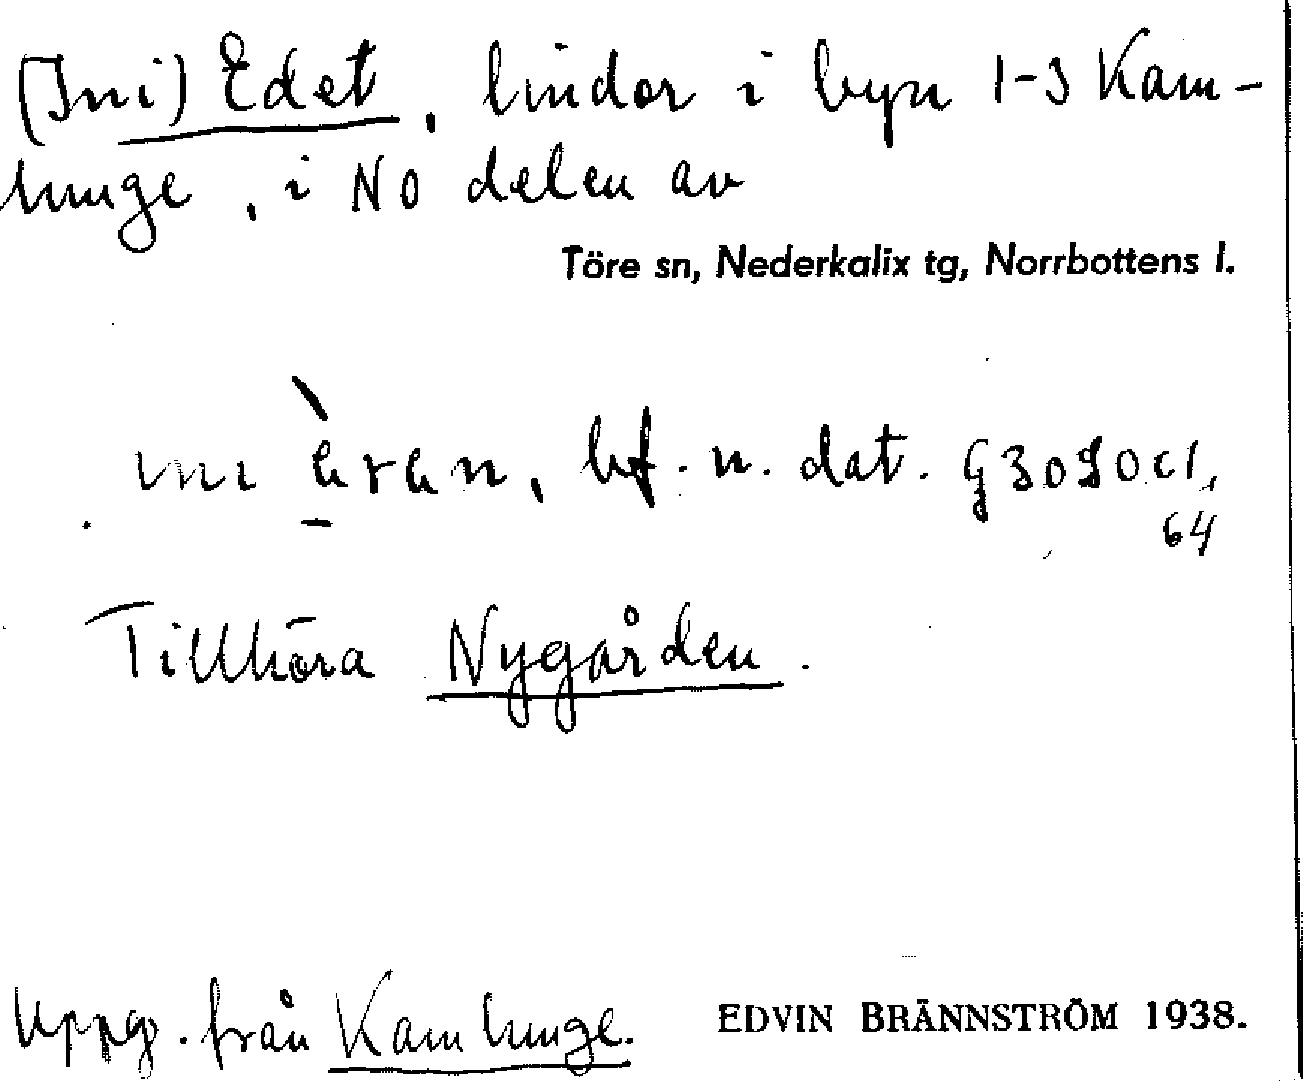 (Ini) Edet, lindor i byn 1-3 Kam-
lunge, i NO delen av
Töre sn, Nederkalix tg, Norrbottens l.
bf. n. dat.
64
Tillhöra Nygården.
Uppg. från Kamlunge. EDVIN BRÄNNSTRÖM 1938.